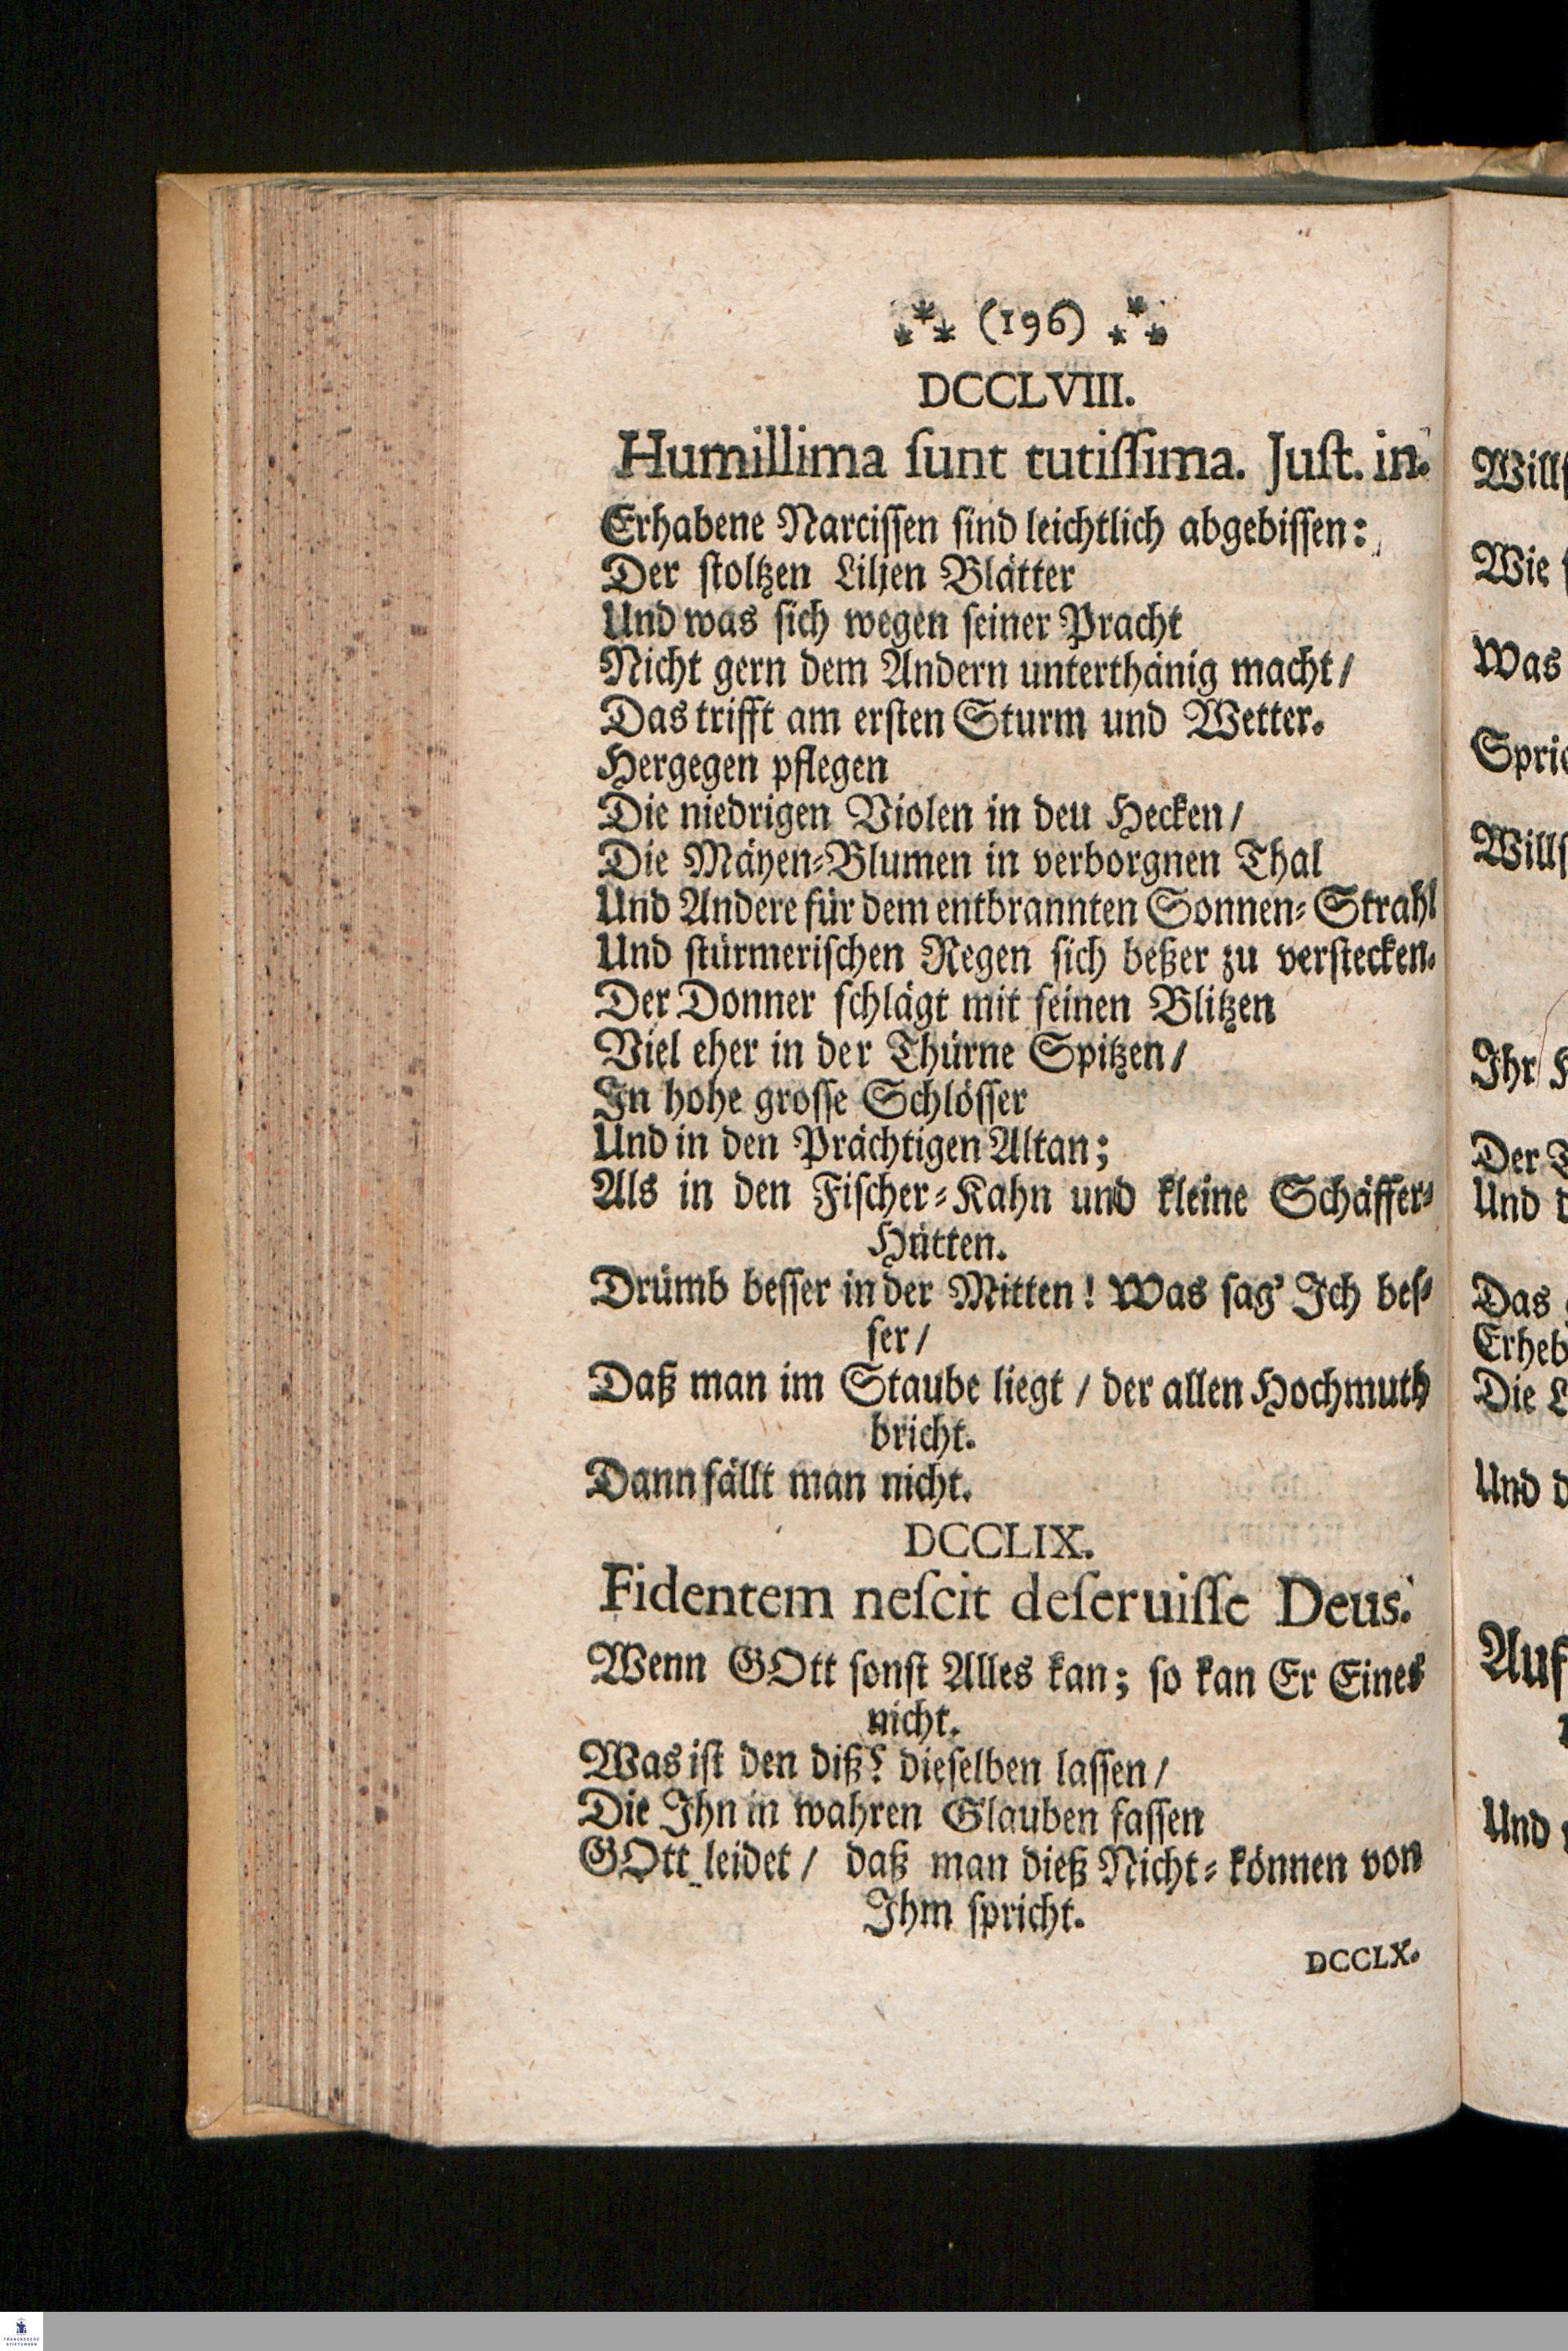 (196)
DCCLVIII.
Humillima ſunt tutiſſima. Juſt. in.
Erhabene Narciſſen ſind leichtlich abgebiſſen:
Der ſtoltzen Liljen Blätter
Und was ſich wegen ſeiner Pracht
Nicht gern dem Andern unterthänig macht/
Das trifft am erſten Sturm und Wetter.
Hergegen pflegen
Die niedrigen Violen in deu Hecken/
Die Mäyen-Blumen in verborgnen Thal
Und Andere für dem entbrannten Sonnen-Strahl
Und ſtürmeriſchen Regen ſich beßer zu verſtecken.
Der Donner ſchlägt mit ſeinen Blitzen
Viel eher in der Thürne Spitzen/
In hohe groſſe Schlöſſer
Und in den Prächtigen Altan;
Als in den Fiſcher-Kahn und kleine Schäffer-
Hütten.
Drümb beſſer in der Mitten! Was ſag' Ich beſ-
ſer/
Daß man im Staube liegt / der allen Hochmuth
bricht.
Dann fällt man nicht.
DCCLIX.
Fidentem neſcit deſeruiſſe Deus.
Wenn GOtt ſonſt Alles kan; ſo kan Er Eines
nicht.
Was iſt den diß? dieſelben laſſen/
Die Ihn in wahren Glauben faſſen
GOtt leidet / daß man dieß Nicht-können von
Ihm ſpricht.
DCCLX.
Wie
Was
Ihr
Der
Und
Das
Die
Und
Und
FRANCKESCHE
STIFTUNGEN